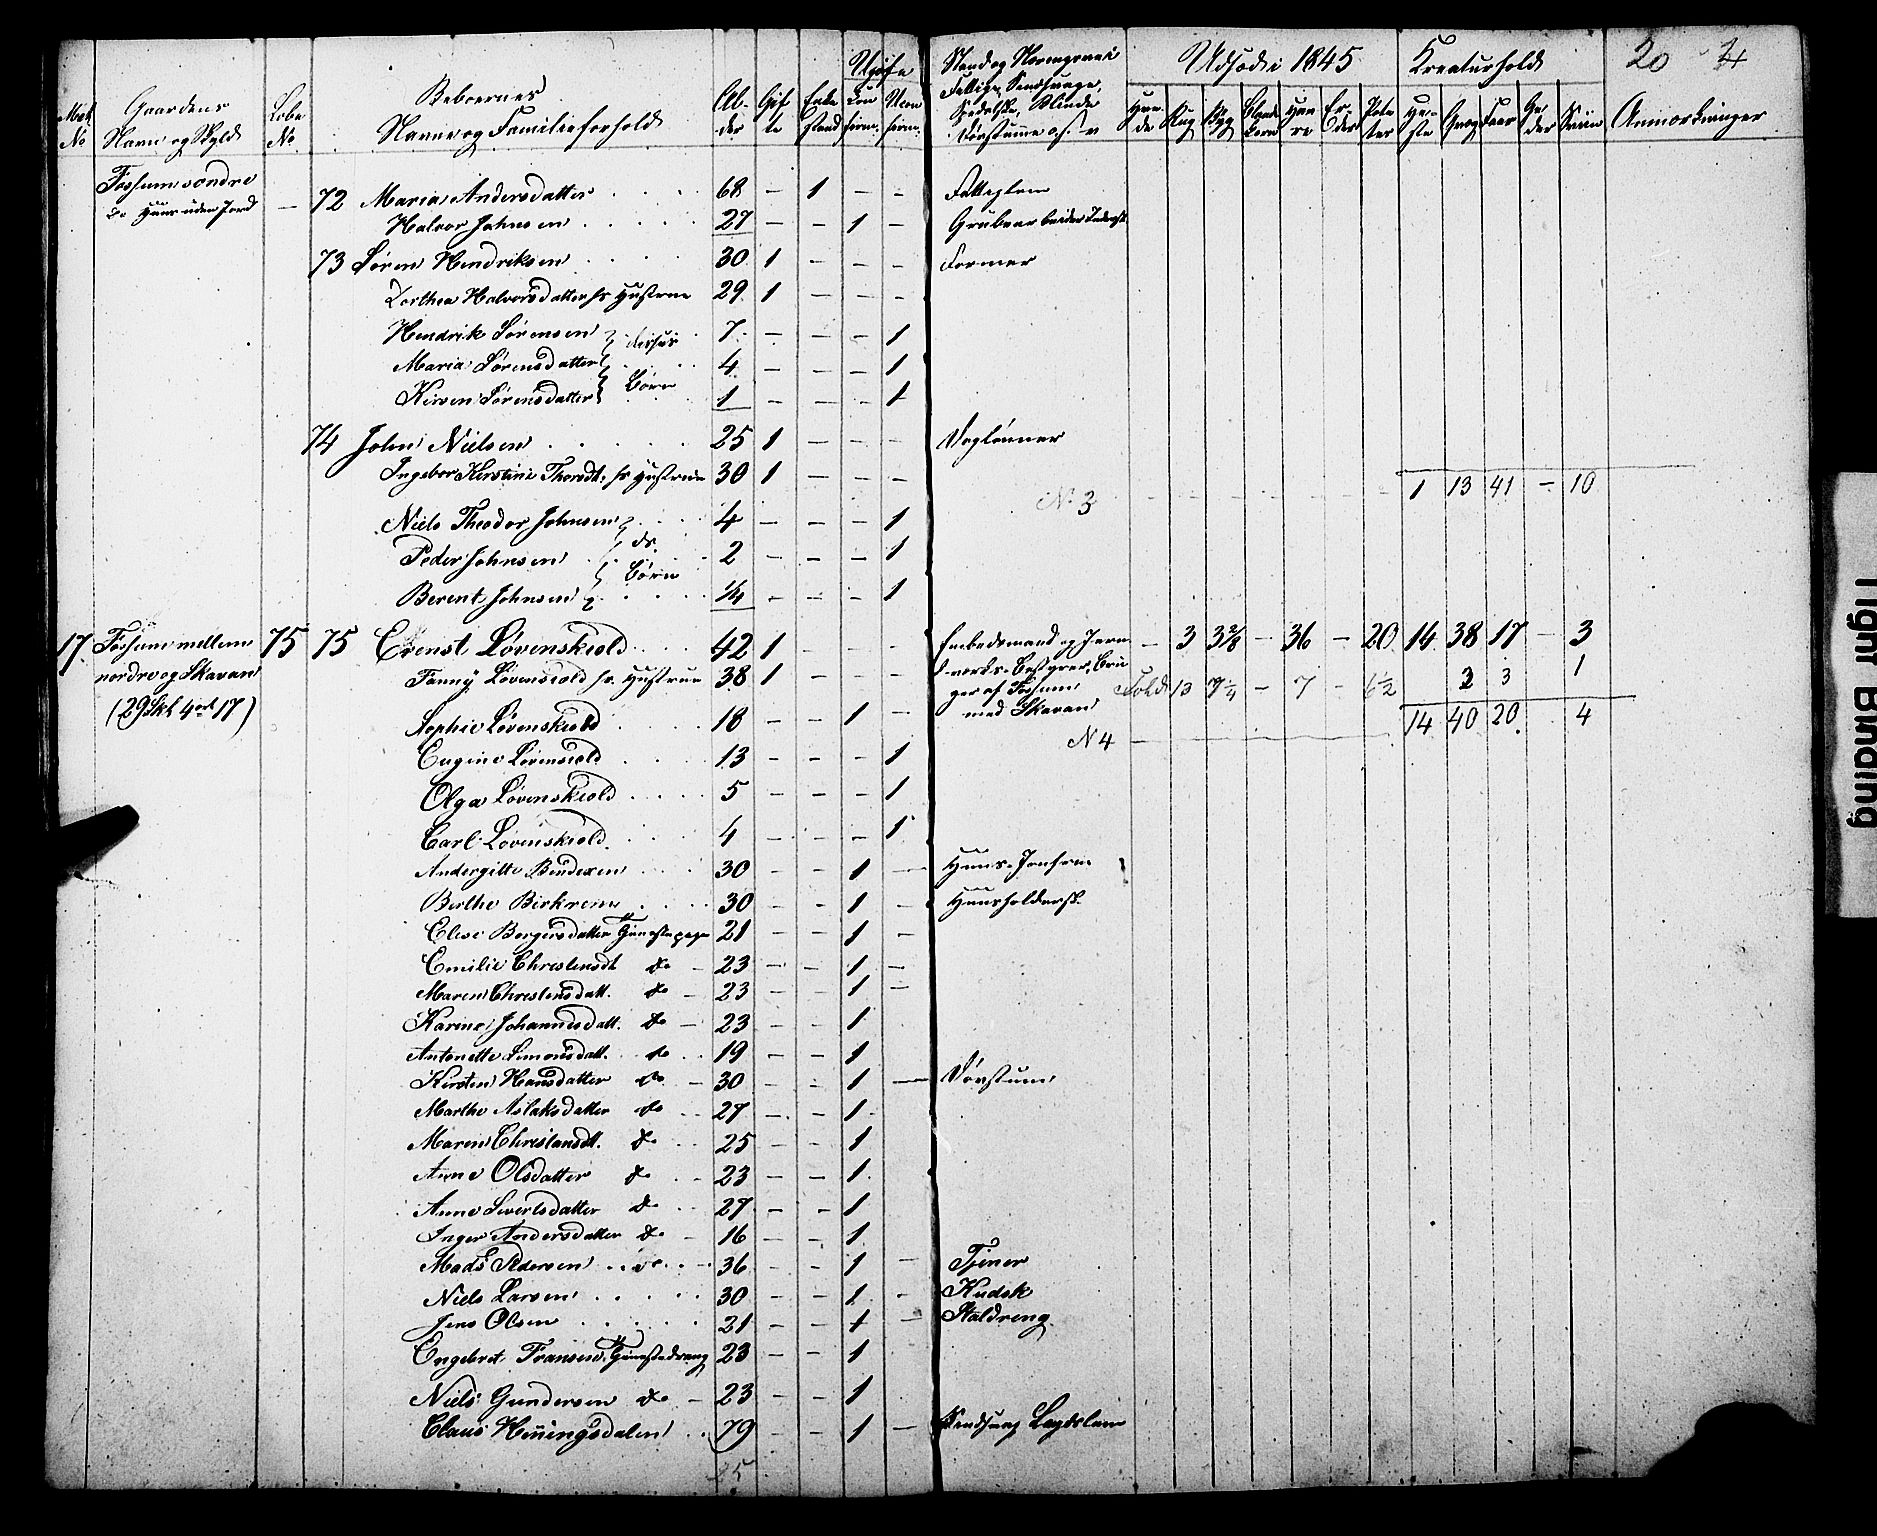 20 24
Udsød i 1845 Kreaturhold
Matr. No Gaardens Navn og Skyld Løbe No Beboernes Navne og Familieforhold Al- der Gif te Enke stand Ugifte Con firm. Ucon firm. Hve- de Rug Byg Bland korn Hav re Er- der Pote ter He- ste Qvæg Faar Ge- der Sviin Anmærkninger
Fossum søndre
do Huus uden Jord — 72 Maria Andersdatter 68 — 1 — — Fattiglem
Halvor Johnsen 27 — — 1 —
73 Søren Hendriksen 30 1 — — — Former
Dorthea Halvorsdatter hs Hustrue 29 1 — — —
Hendrik Sørensen 7 — — — 1
Maria Sørensdatter 4 — — — 1
Børn
Kirsten Sørensdatter 1 — — — 1
74 John Nielsen 25 1 — — — Dagleiner
Ingebor Kirstine Thorsdt. hs Hustrue 30 1 — — —
No 3 1 13 41 — 10
Niels Theodor Johnsen 4 — — — 1
ds.
Peder Johnsen 2 — — — 1
Børn
Berent Johnsen 1/4 — — — 1
17. Fossum mellem 75 75 Ernst Løvenskiold 42 1 — — — Embedsmand og Jern — 3 3 2/8 — 36 — 20 14 38 17 — 3
nordre og Skavan Fanny Løvenskiold hs. Hustrue 38 1 — — — værks-Bestyrer, Bru 13 7 1/4 — 7 — 6 1/2 2 3 1
ger af Fossum
(29 Skl 4 ort 17) Sophie Løvenskiold 18 — — 1 — med Skavan 14 40 20 4
N 4
Eugine Løvenskiold 13 — — — 1
Olga Løvenskiold 5 — — — 1
Carl Løvenskiold 4 — — — 1
Andergitte Bendexen 30 — — 1 — Huus-Jomfrue
Berthe Birkrem 30 — — 1 — Huusholdersk.
Elise Borgersdatter Tjenestepige 21 — — 1 —
Emilie Christensdt do — 23 — — 1 —
Maren Christensdatt. do — 23 — — 1 —
Karine Johannesdatt. do — 23 — — 1
Antonette Simonsdatt. do 19 — — 1
Kirsten Hansdatter do — 30 — — 1 — Døvstum
Marthe Aslaksdatter do 27 — — 1
Maren Christiansdt. do 25 — — 1
Anne Olsdatter do 23 — — 1
Anne Sivertsdatter do 27 — — 1
Inger Andersdatter do — 16 — — 1
Mads Pedersen 36 — — 1 — Tjener
Niels Larsen 30 — — 1 — Kudsk
Jens Olsen 21 — — 1 — Staldreng
Engebret Fransen Tjenestedreng 23 — — 1
Niels Gundersen do — 23 — — 1
Claus Henningsdalen 79 — — 1 — Sindsvag Lægdslem
25
Tight Binding